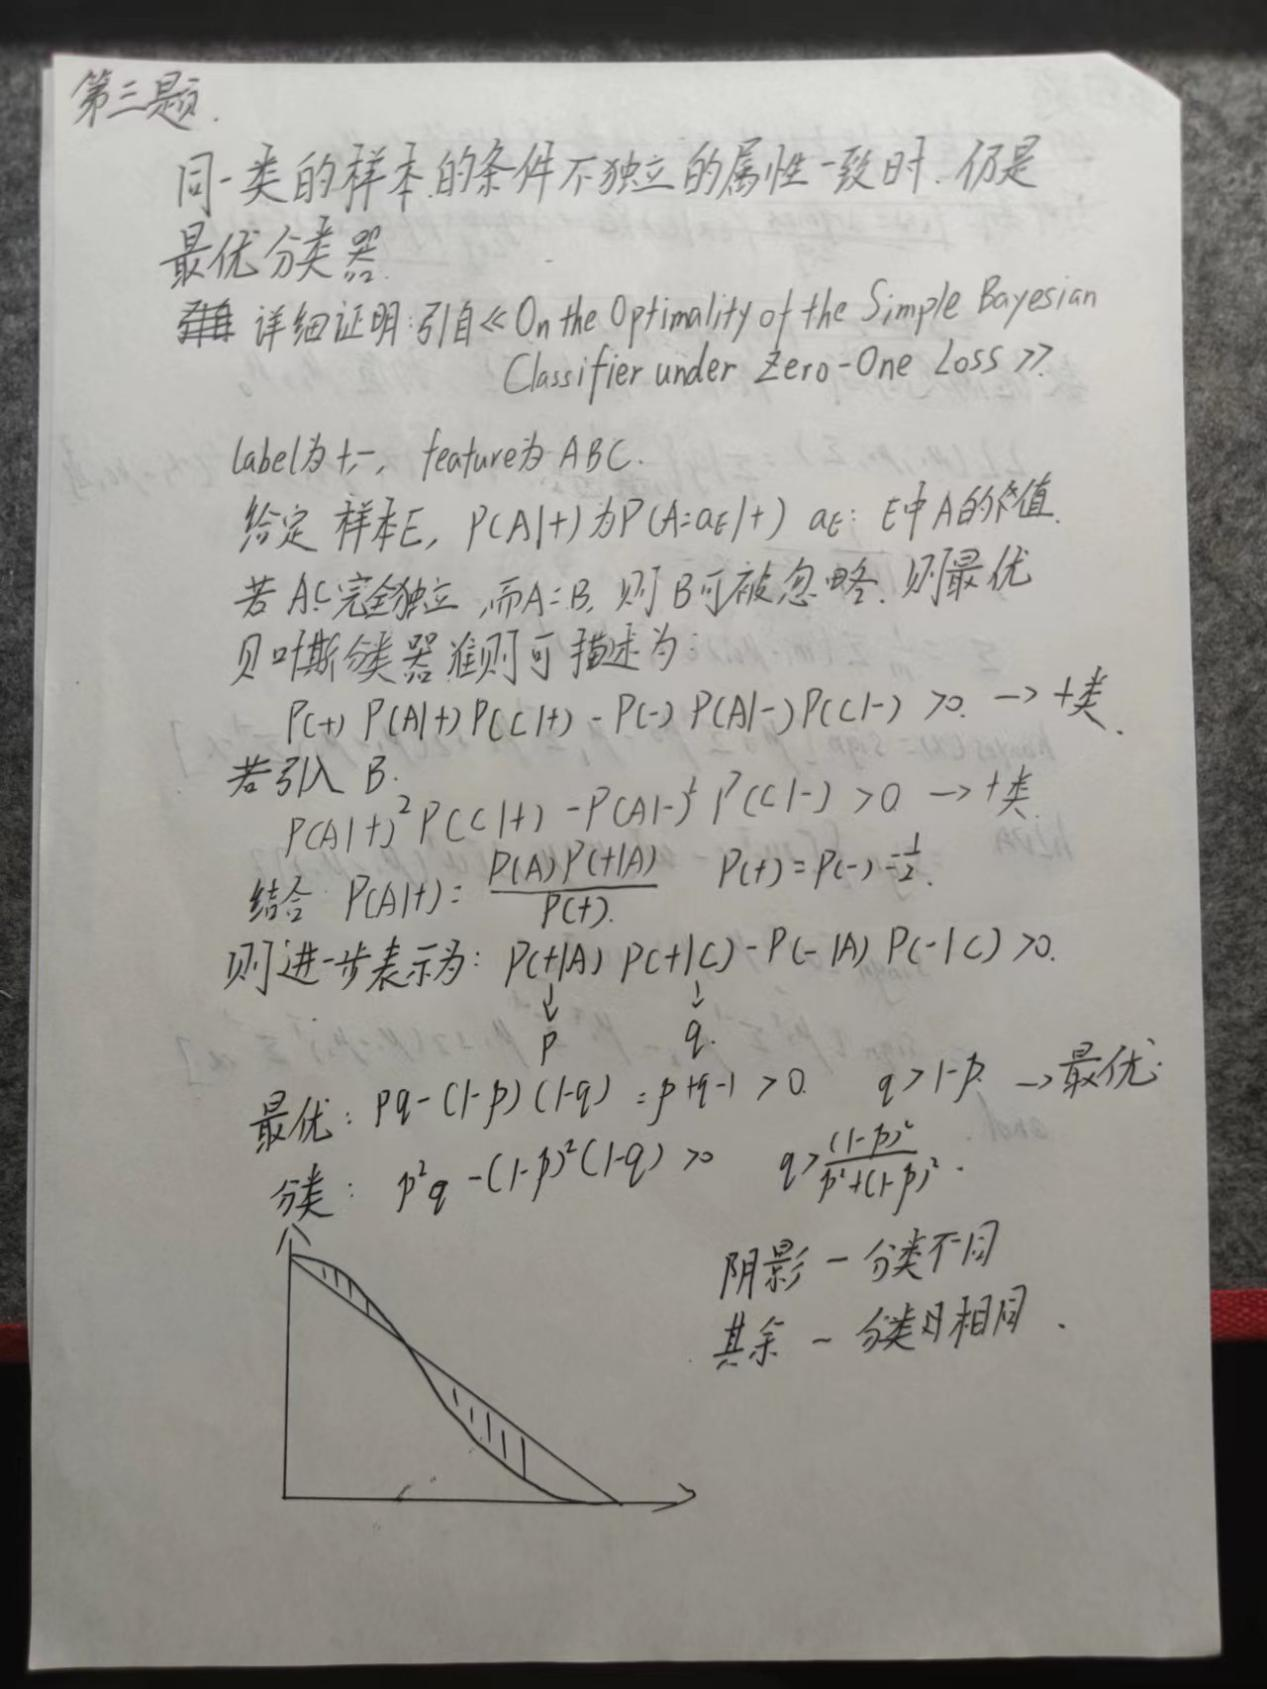 第三题.
同一类的样本的条件不独立的属性一致时.仍是
最优分类器.
详细证明:引自《On the Optimality of the Simple Bayesian
Classifier under Zero-One Loss》.
label为+,-, feature为ABC.
给定样本E, P(A|+)为P(A=a_E|+) a_E: E中A的值.
若A.C完全独立,而A=B,则B可被忽略.则最优
贝叶斯分类器准则可描述为:
P(+) P(A|+) P(C|+) - P(-) P(A|-) P(C|-) >0. → +类.
若引入B.
P(A|+)² P(C|+) - P(A|-)² P(C|-) >0 → +类.
结合 P(A|+) = P(A)P(+|A) / P(+). P(+) = P(-) = 1/2.
则进一步表示为: P(+|A) P(+|C) - P(-|A) P(-|C) >0.
↓ ↓
p q.
最优: pq-(1-p)(1-q) = p+q-1 >0. q>1-p. →最优.
分类: p²q-(1-p)²(1-q) >0 q> (1-p)² / p²+(1-p)².
阴影-分类不同
其余-分类相同.